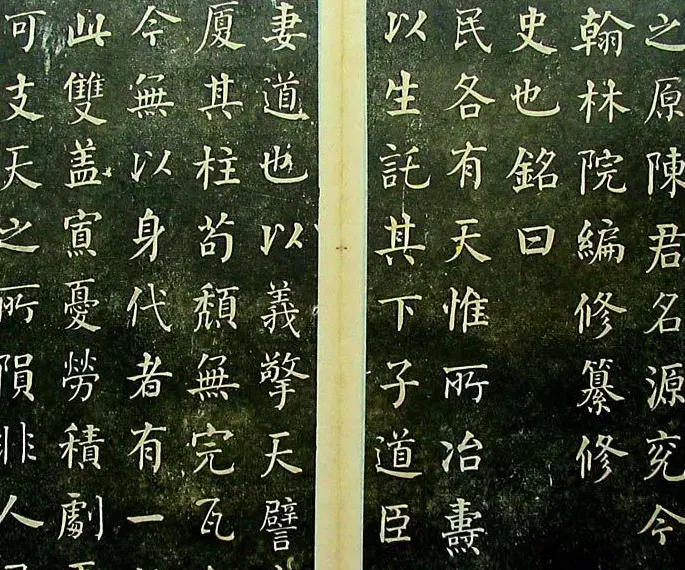 之原陳君名源兖今
翰林院編修纂修
史也銘曰
民各有天惟所冶燾
以生託其下子道臣
妻道也以義擎天譬
廈其柱苟頹無完瓦
今無以身代者有一
此雙盖寘憂勞積劇
可支天之所隕非人